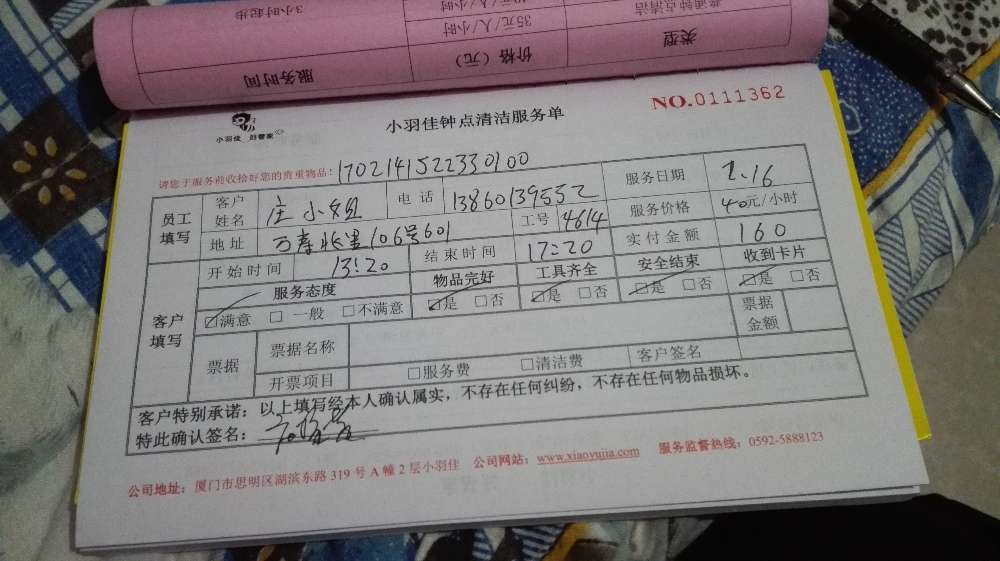 类型 价格（元） 服务时间
普通钟点清洁 35元/人/小时 3小时起步
NO.0111362
小羽佳 好管家
小羽佳钟点清洁服务单
请您于服务前收拾好您的贵重物品： 1702141522330100
员工填写 客户姓名 庄小姐 电话 13860139552 服务日期 2.16
地址 万寿北里106号601 工号 4614 服务价格 40元/小时
开始时间 13:20 结束时间 17:20 实付金额 160
客户填写 服务态度 物品完好 工具齐全 安全结束 收到卡片
☑满意 □一般 □不满意 ☑是 □否 ☑是 □否 ☑是 □否 ☑是 □否
票据 票据名称 票据金额
开票项目 □服务费 □清洁费 客户签名
客户特别承诺：以上填写经本人确认属实，不存在任何纠纷，不存在任何物品损坏。
特此确认签名：
公司地址：厦门市思明区湖滨东路 319 号 A 幢 2 层小羽佳 公司网站：www.xiaoyujia.com 服务监督热线：0592-5888123